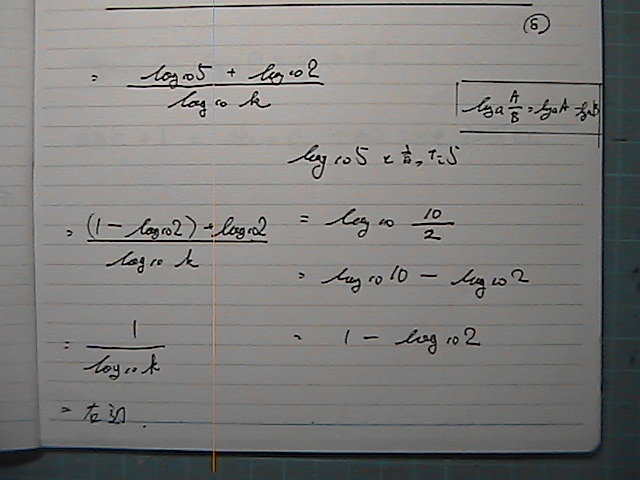 ⑤
= (log₁₀5 + log₁₀2) / log₁₀k
logₐ A/B = logₐA - logₐB
log₁₀5
= ((1 - log₁₀2) + log₁₀2) / log₁₀k
= log₁₀ 10/2
= log₁₀10 - log₁₀2
= 1 / log₁₀k
= 1 - log₁₀2
= 右辺.